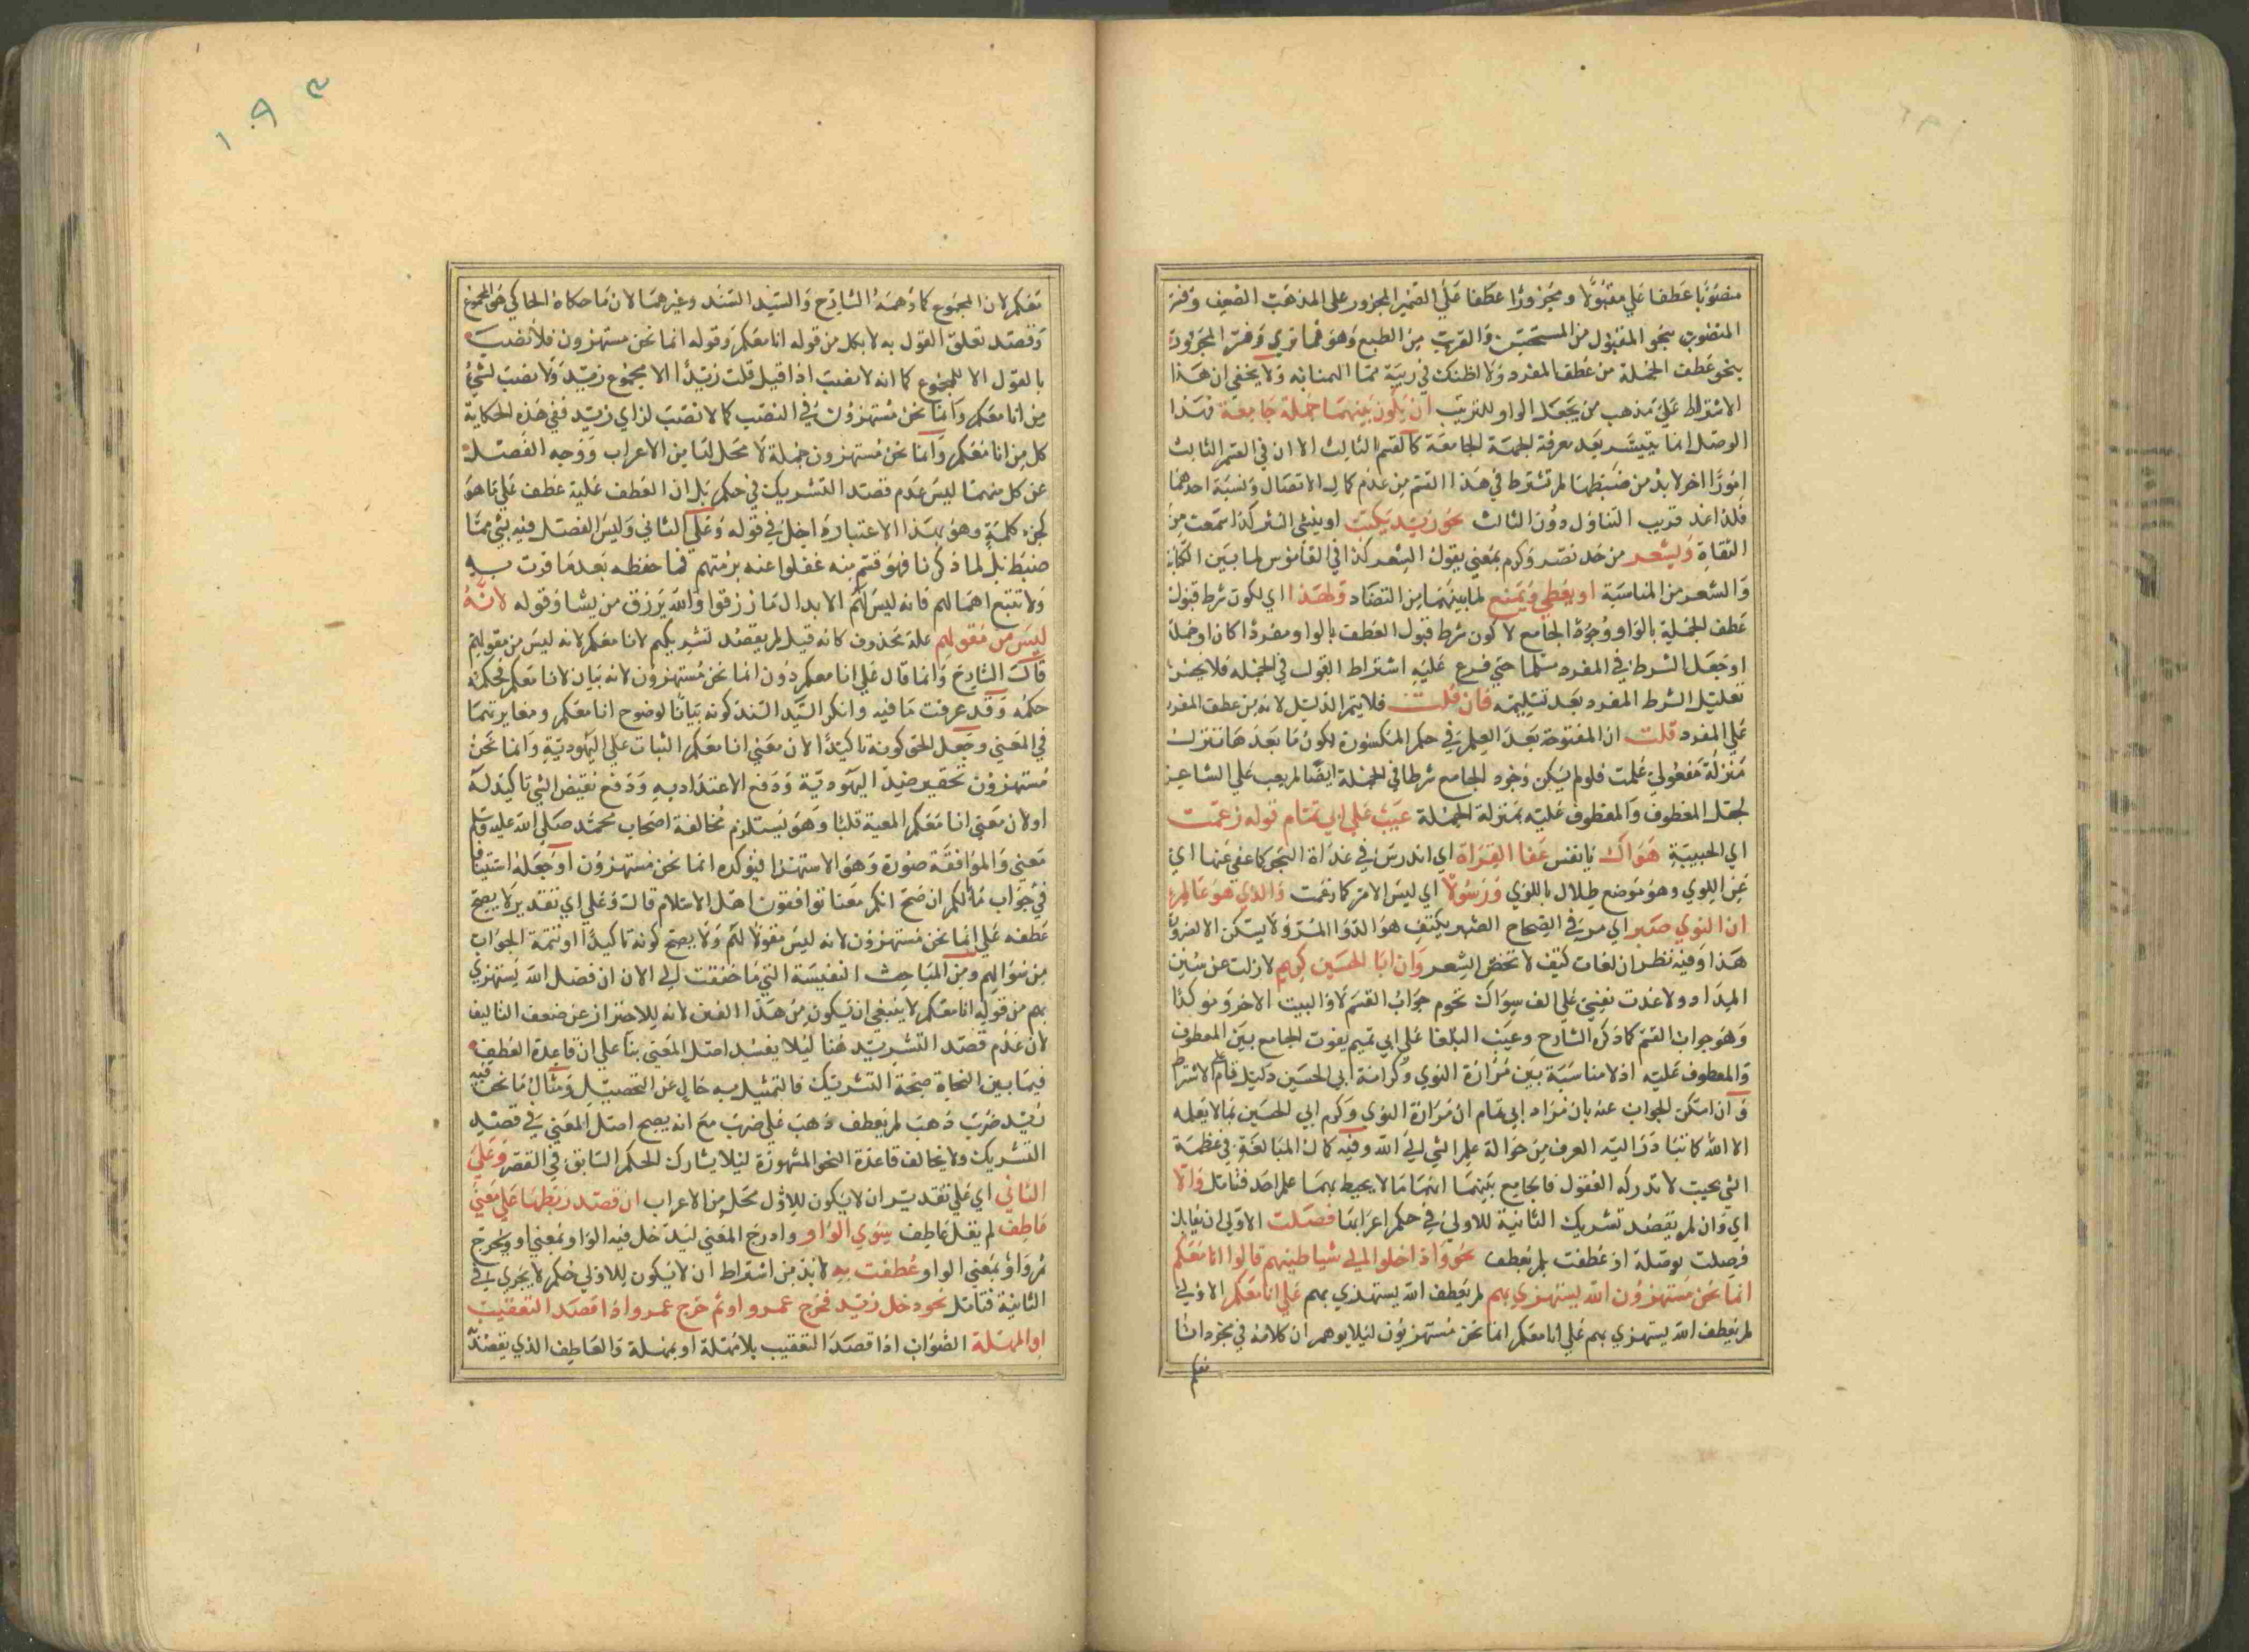 منصوبا عطفا علي مقبولا ومجرورا عطفا علي الضمير المجرور على المذهب الضعيف وفسر
المنصوب بنحو المقبول من المستحسن والقريب من الطبع وهو فما تري وفسر المجرور
بنحو عطف الجملة من عطف المفرد ولا اظنك في ريبة مما المنابه ولا يخفي ان هذا
الاشتراط علي مذهب من يجعل الواو للترتيب ان يكون بينهما جملة جامعة فهذا
الوصل انما يتيسر بعد معرفة الجهة الجامعة كالقسم الثالث الا ان في القسم الثالث
امورا اخر لابد من ضبطها لم تشترط في هذا القسم من عدم كمال الاتصال ونسبة احدهما
فلذا عد قريب التناول دون الثالث نحو زيد يكتب او ينشئ النثر كذا سمعت من
الثقاة ويشعر من حد نصر وكرم بمعني يقول الشعر كذا في القاموس لما بين الكتابة
والشعر من المناسبة او يعطي ويمنع لما بينهما من التضاد ولهذا اي لكون شرط قبول
عطف الجملة بالواو وجود الجامع لا كون شرط قبول العطف بالواو مفردا كان او جملة
او جعل الشرط في المفرد مثلها حتي فرع عليه اشتراط القبول في الجملة فلا يحسن
تعليل الشرط المفرد بعد تسليمه فان قلت فلا يتم الدليل لانه من عطف المفرد
علي المفرد قلت ان المفتوحة بعد العلم في حكم المكسورة لكون ما بعدها تنزل
منزلة مفعولي علمت فلو لم يكن وجود الجامع شرطا في الجملة ايضا لم يعب علي الشاعر
لجعل المعطوف والمعطوف عليه بمنزلة الجملة عيب علي ابي تمام قوله زعمت
اي الحبيبة هواك يا نفس عفا الغداة اي اندرس في غداة النجو كما عفي عنها اي
عن اللوي وهو موضع طلال باللوي ورسولا اي ليس الامر كما زعمت والذي هو عالم
ان النوي صبر اي مر في الصحاح الصبر بكتف هو الدوا المر ولا يسكن الا لضرورة
هذا وفيه نظر ان لغات كتف لا تخص الشعر وان ابا الحسين كريم لا زلت عن سنن
الوداد ولا غدت نفسي علي الف سواك تحوم جواب القسم لا والبيت الاخر موكدا
وهو جواب القسم كما ذكره الشارح وعيب البلغا علي ابي تميم بفوت الجامع بين المعطوف
والمعطوف عليه اذ لا مناسبة بين مرارة النوي وكرامة ابي الحسين دليل تام على الاشتراط
وان امكن الجواب عنه بان مراد ابي تمام ان مرارة النوي وكرم ابي الحسين مما لا يعلمه
الا الله كما تبادر اليه العرف من حوالة علم الشي الي الله وفيه كمال المبالغة في عظمة
الشي بحيث لا تدركه العقول فالجامع بينهما انهما مما لا يحيط بهما علم احد فتامل والا
اي وان لم يقصد تشريك الثانية للاولي في حكم اعرابها فصلت الاولي ان يقابل
فصلت بوصلة اذ عطفت بلم يعطف نحو واذا خلوا الي شياطينهم قالوا انا معكم
انما نحن مستهزؤن الله يستهزي بهم لم يعطف الله يستهزي بهم علي انا معكم الاولي
لم يعطف الله يستهزي بهم علي انا معكم انما نحن مستهزيون ليلا يوهم ان كلامه في مجرد انا
معكم
١٩٣
معكم لان المجموع كما وهمه الشارح والسيد السند وغيرهما لان ما حكاه الحاكي هو المجموع
وقصد تعلق القول به لا بكل من قوله انا معكم وقوله انما نحن مستهزون فلا نصيب
بالقول الا للمجموع كما انه لا نصيب اذا قيل قلت زيدا الا مجموع زيد ولا نصب لشي
من انا معكم وانما نحن مستهزؤن في النصب كما لا نصب لزاي زيد ففي هذه الحكاية
كل من انا معكم وانما نحن مستهزون جملة لا محل لها من الاعراب ووجه الفصل
عن كل منهما ليس عدم قصد التشريك في حكم بل ان العطف عليه عطف علي ما هو
كجزء كلمة وهو بهذا الاعتبار داخل في قوله وعلي الثاني وليس الفصل فيه بشي مما
ضبط بل لما ذكرنا فهو قسم منه غفلوا عنه برمتهم فما حفظه بعد ما قرت به
ولا تتبع اهمالهم فانه ليس لهم الا بدال ما رزقوا والله يرزق من يشا وقوله لانه
ليس من مقولهم علة محذوف كانه قيل لم يقصد تشريكهم لانا معكم لانه ليس من مقولهم
قال الشارح وانما قال علي انا معكم دون انما نحن مستهزون لانه بيان لانا معكم فحكمه
حكمه وقد عرفت ما فيه وانكر السيد السند كونه بيانا لوضوح انا معكم ومغايرتهما
في المعني وجعل الحق كونه تاكيدا لان معني انا معكم الثبات علي اليهودية وانما نحن
مستهزون تحقير ضد اليهودية ودفع الاعتداد به ودفع نقيض الشي تاكيد له
او لان معني انا معكم المعية قلبا وهو يستلزم مخالفة اصحاب محمد صلي الله عليه وسلم
معني والموافقة صورة وهو الاستهزا فيؤكده انما نحن مستهزؤن او جعله استينافا
في جواب مالكم ان صح انكم معنا توافقون اهل الاسلام قال وعلي اي تقدير لا يصح
عطفه علي انما نحن مستهزون لانه ليس مقولا لهم ولا يصح كونه تاكيدا او تتمة الجواب
من سؤالهم ومن المباحث النفيسة التي ما خفقت الي الان ان فصل الله يستهزي
بهم من قوله انا معكم لا ينبغي ان يكون من هذا الفن لانه للاحتراز عن ضعف التاليف
لان عدم قصد التشريك هنا ليلا يفسد اصل المعني بنا علي ان قاعدة العطف
فيما بين النحاة صحة التشريك فالتمثيل به خال عن التحصيل ومثال ما نحن فيه
زيد ضرب ذهب لم يعطف ذهب علي ضرب مع انه يصح اصل المعني في قصد
التشريك ولا يخالف قاعدة النحو المشهورة ليلا يشارك الحكم السابق في القصر وعلي
الثاني اي علي تقدير ان لا يكون للاول محل من الاعراب ان قصد ربطها علي معني
عاطف لم يقل عاطف سوي الواو وادرج المعني ليدخل فيه الواو بمعني او ويخرج
ثم واو بمعني الواو عطفت به لابد من اشتراط ان لا يكون للاولي حكم لا يجري في
الثانية فتامل نحو دخل زيد فخرج عمرو او ثم خرج عمرو اذا قصد التعقيب
او المهلة الصواب اذا قصد التعقيب بلا مهلة او بمهلة والعاطف الذي يقصد